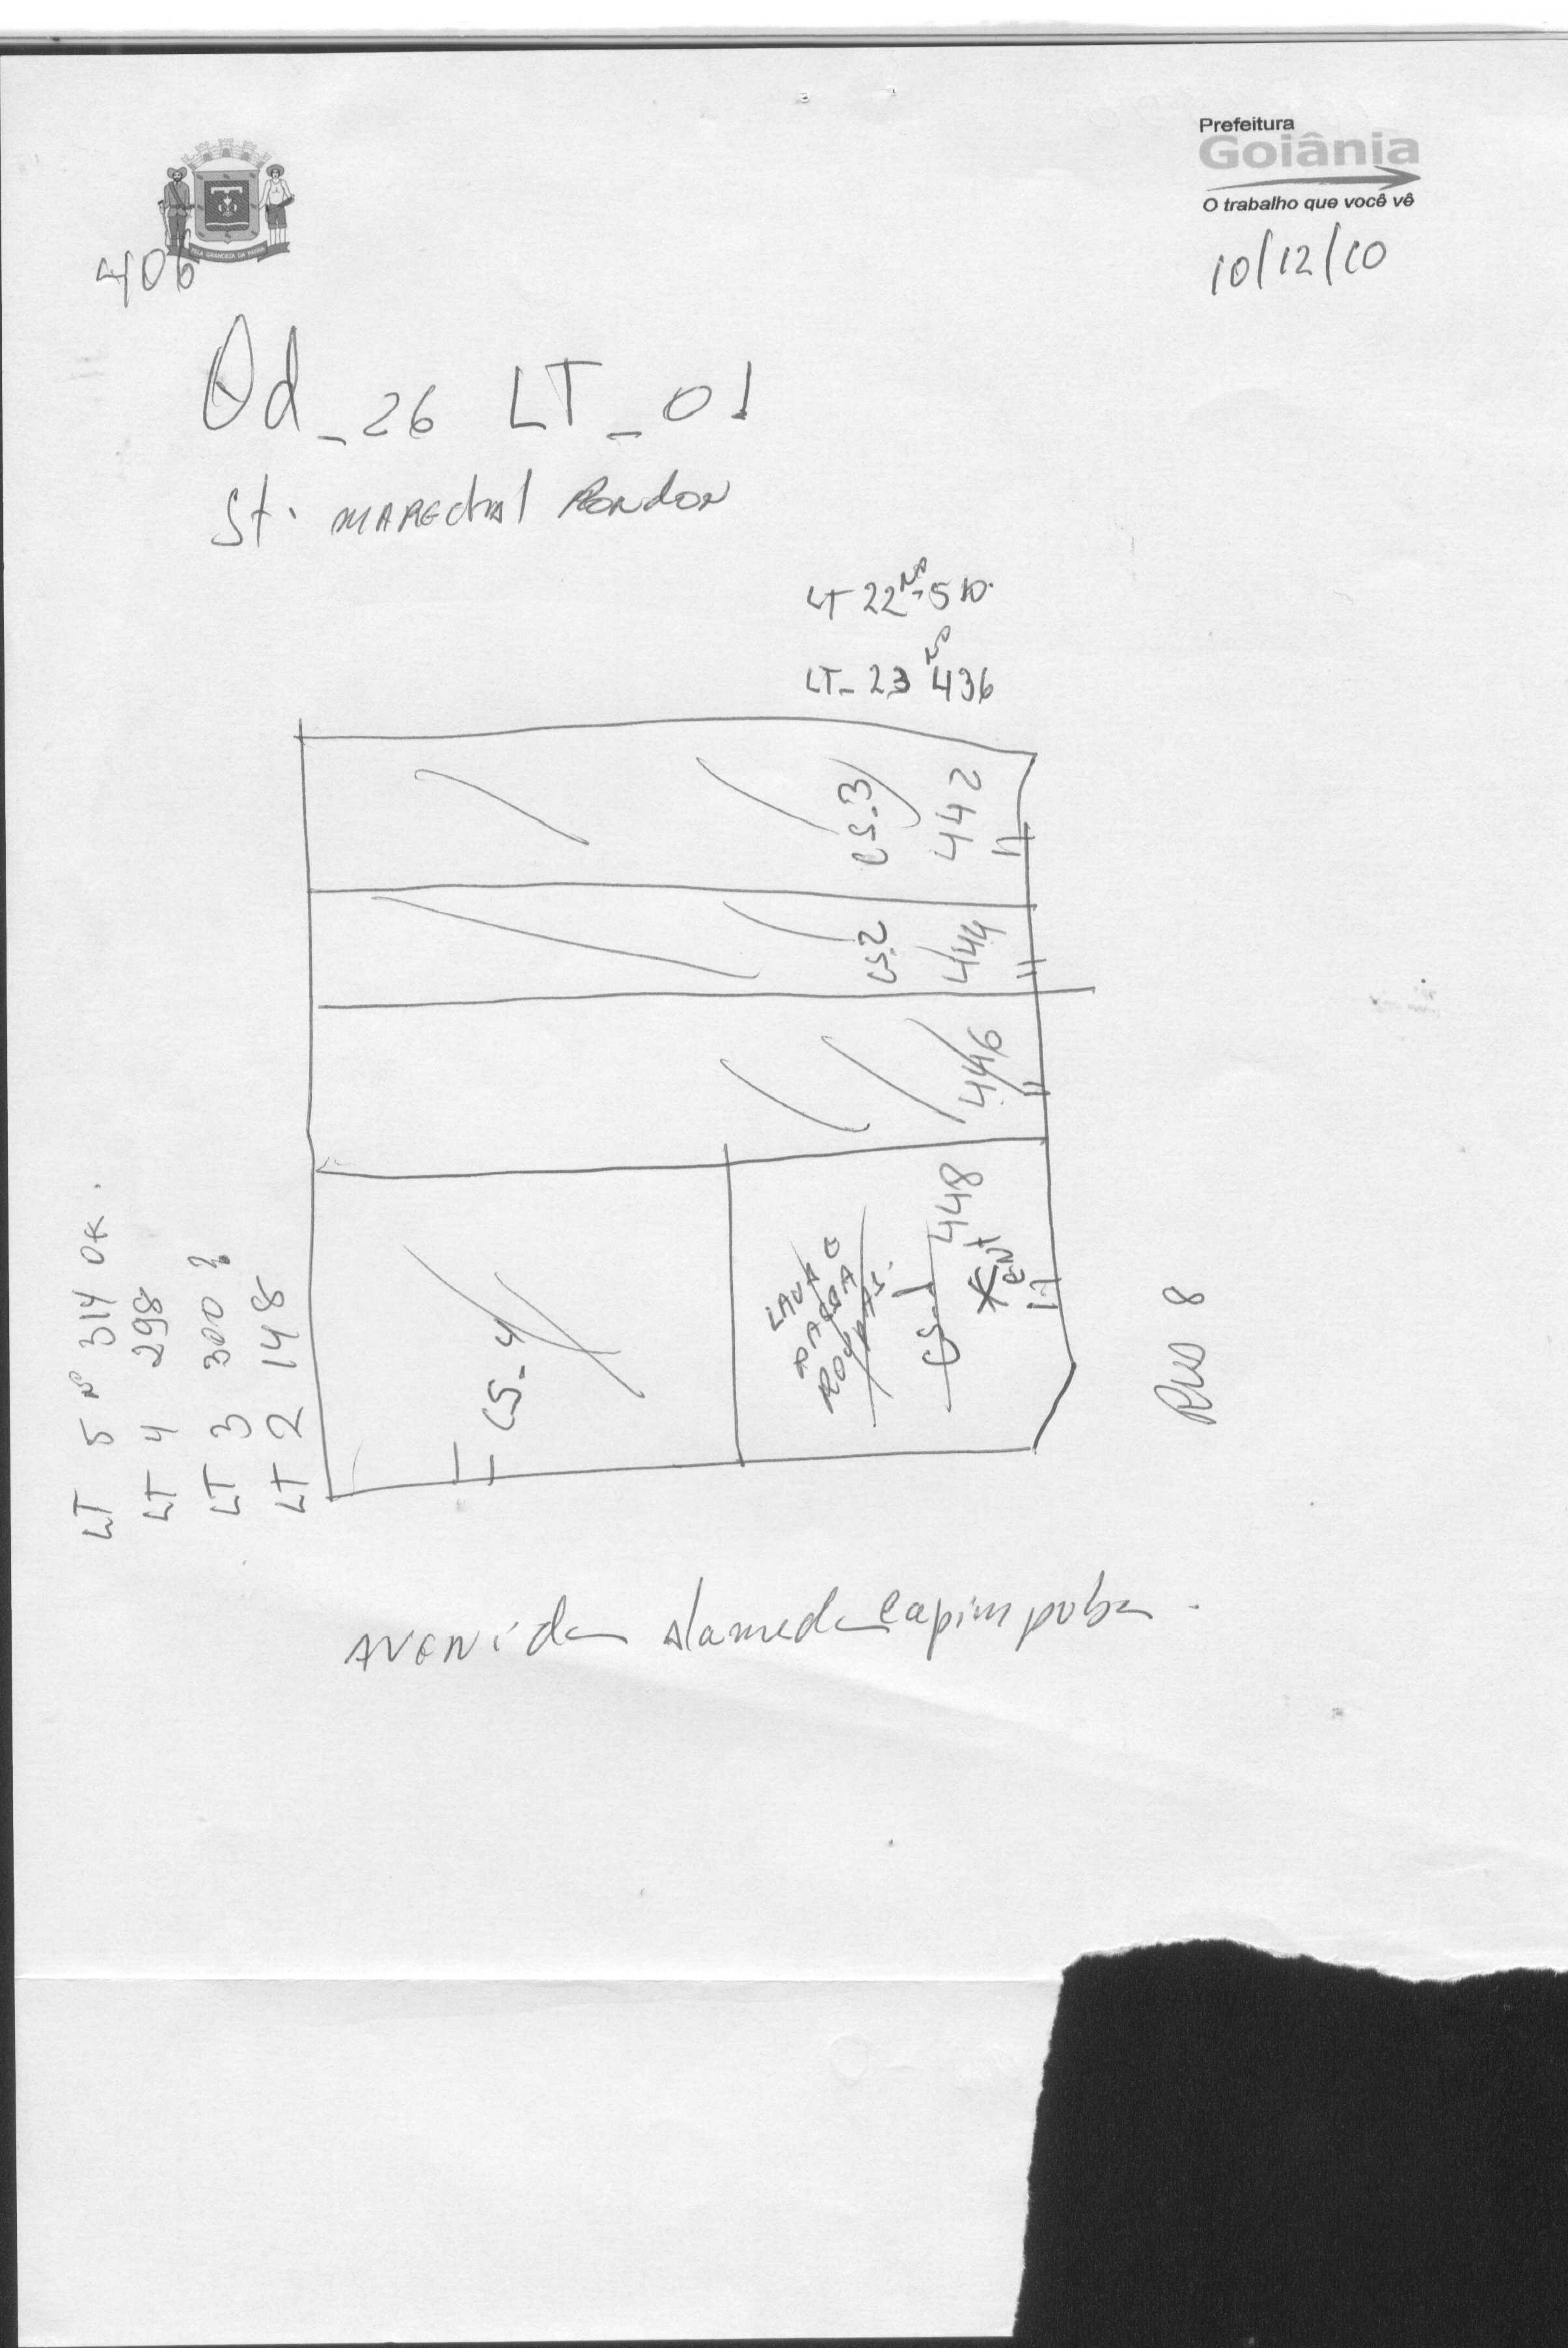 Prefeitura
Goiânia
O trabalho que você vê
PELA GRANDEZA DA PÁTRIA
406
10/12/10
Qd_26 LT_01
St. MAREchal RONdON
LT 22 Nº 510.
LT_23 Nº 436
CS_3
442
CS.2
444
446
CS_4
LAVA
ROUPAS.
CS_1
448
ENT
LT 5 Nº 314 OK.
LT 4 298
LT 3 300 ?
LT 2 148
RUA 8
AVENida Alameda Capim puba.